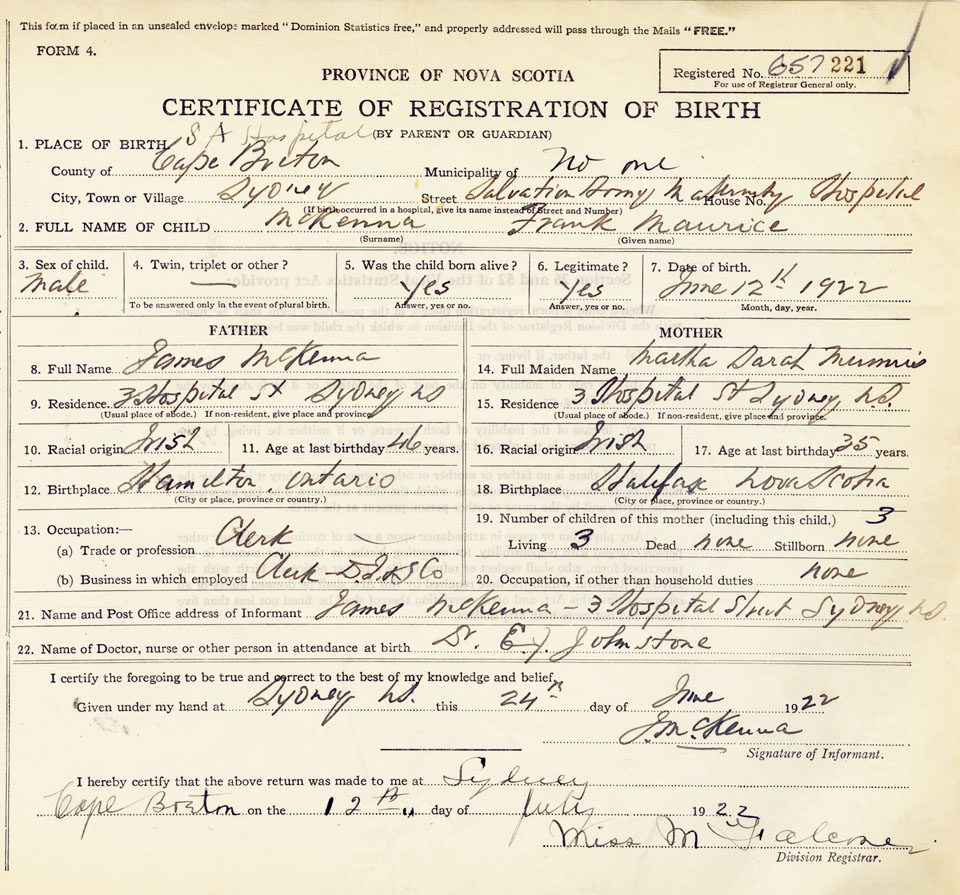 This form if placed in an unsealed envelope marked "Dominion Statistics free," and properly addressed will pass through the Mails "FREE."
FORM 4.
PROVINCE OF NOVA SCOTIA
Registered No. 657 221
For use of Registrar General only.
CERTIFICATE OF REGISTRATION OF BIRTH
S A Hospital (BY PARENT OR GUARDIAN)
1. PLACE OF BIRTH
County of Cape Breton Municipality of No one
City, Town or Village Sydney Street Salvation Army Maternity Hospital House No.
(If birth occurred in a hospital, give its name instead of Street and Number)
2. FULL NAME OF CHILD McKenna Frank Maurice
(Surname) (Given name)
3. Sex of child. 4. Twin, triplet or other? 5. Was the child born alive? 6. Legitimate? 7. Date of birth.
Male — Yes Yes June 12th 1922
To be answered only in the event of plural birth. Answer, yes or no. Answer, yes or no. Month, day, year.
FATHER
8. Full Name James McKenna
9. Residence 3 Hospital St Sydney NS
(Usual place of abode.) If non-resident, give place and province
10. Racial origin Irish 11. Age at last birthday 46 years.
12. Birthplace Hamilton, Ontario
(City or place, province or country.)
13. Occupation:—
(a) Trade or profession Clerk
(b) Business in which employed Clerk - D.I. & S Co
MOTHER
14. Full Maiden Name Martha Sarah
15. Residence 3 Hospital St Sydney N.S.
(Usual place of abode.) If non-resident, give place and province.
16. Racial origin Irish 17. Age at last birthday 35 years.
18. Birthplace Halifax Nova Scotia
(City or place, province or country.)
19. Number of children of this mother (including this child.) 3
Living 3 Dead none Stillborn none
20. Occupation, if other than household duties none
21. Name and Post Office address of Informant James McKenna - 3 Hospital Street Sydney NS.
22. Name of Doctor, nurse or other person in attendance at birth Dr. E.J. Johnstone
I certify the foregoing to be true and correct to the best of my knowledge and belief,
Given under my hand at Sydney N.S. this 24th day of June 1922
J. McKenna
Signature of Informant.
I hereby certify that the above return was made to me at Sydney
Cape Breton on the 12th day of July 1922
Miss M Falconer
Division Registrar.